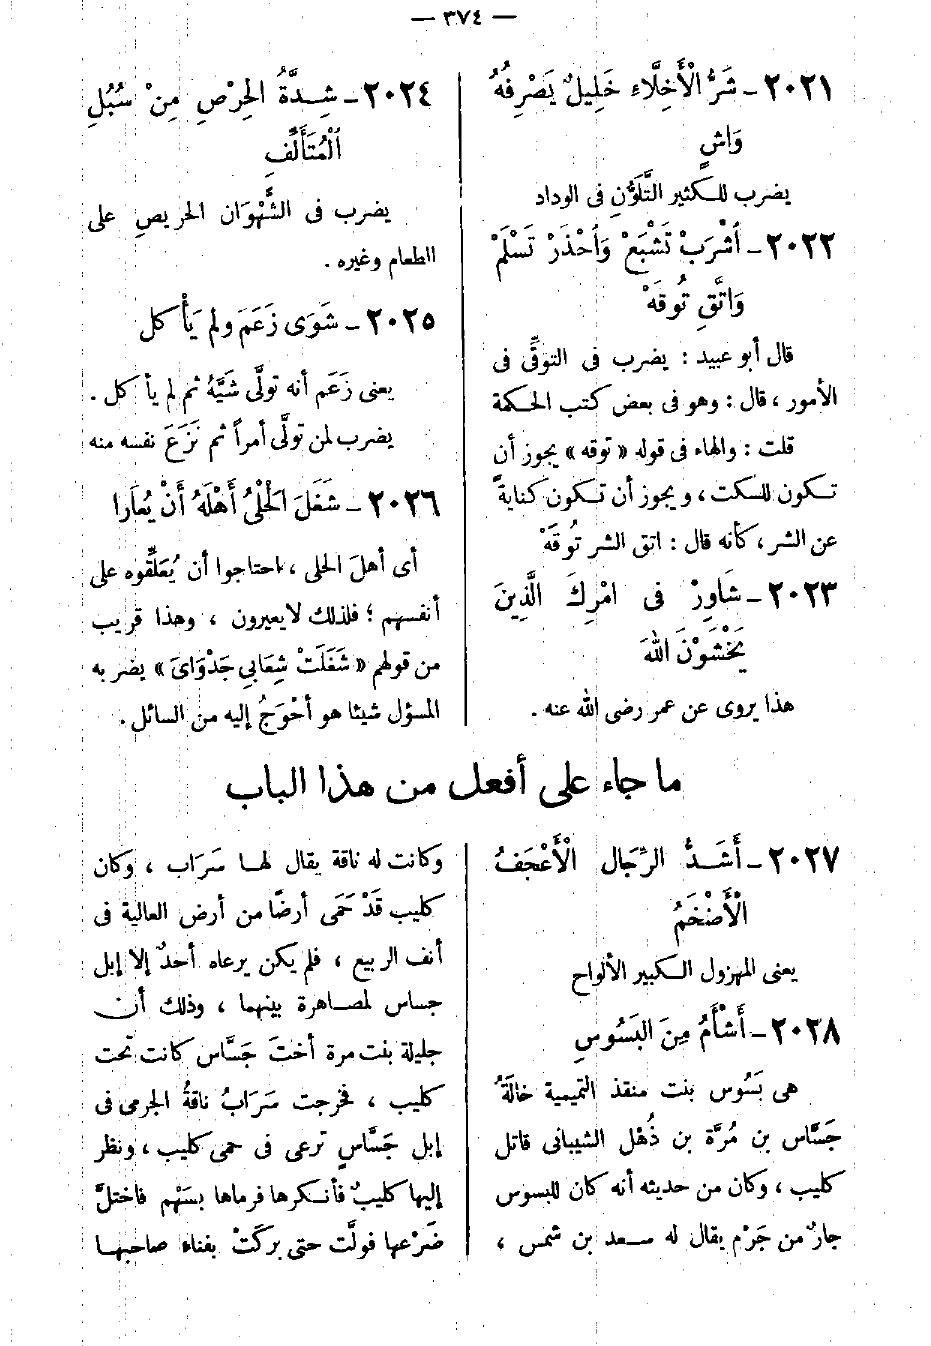 — ٣٧٤ —
٢٠٢١ ـ شَرُّ الْأَخِلَّاءِ خَلِيلٌ يَصْرِفُهُ
وَاشٍ
يضرب للكثير التَّلَوُّنِ فى الوداد
٢٠٢٢ ـ أَشْرَبْ تَشْبَعْ وَأَحْذَرْ تَسْلَمْ
وَاتَّقِ تُوقَهْ
قال أبو عبيد : يضرب فى التوقِّى فى
الأمور ، قال : وهو فى بعض كتب الحكمة
قلت : والهاء فى قوله « توقه » يجوز أن
تكون للسكت ، و يجوز أن تكون كنايةً
عن الشر ، كأنه قال : اتق الشر تُوقَهْ
٢٠٢٣ ـ شَاوِرْ فى امْرِكَ الَّذِينَ
يَخْشَوْنَ اللهَ
هذا يروى عن عمر رضى الله عنه .
٢٠٢٤ ـ شِدَّةُ الْحِرْصِ مِنْ سُبُلِ
الْمُتَأَلِّفِ
يضرب فى الشَّهْوَان الحريص على
الطعام وغيره .
٢٠٢٥ ـ شَوَى زَعَمَ ولم يَأْكل
يعنى زَعَم أنه تولَّى شَيَّهُ ثم لم يأكل .
يضرب لمن تولَّى أمراً ثم نَزَعَ نفسه منه
٢٠٢٦ ـ شَغَلَ الْحَلْىُ أَهْلَهُ أَنْ يُعَارا
أى أهلَ الحلى ، احتاجوا أن يُعَلِّقوه على
أنفسهم ؛ فلذلك لا يعيرون ، وهذا قريب
من قولهم « شَغَلَتْ شِعَابِى جَدْوَاىَ » يضربه
المسؤل شيئا هو أحْوَجُ إليه من السائل .
ما جاء على أفعل من هذا الباب
٢٠٢٧ ـ أَشَدُّ الرِّجَالِ الْأَعْجَفُ
الْأَضْخَمُ
يعنى المهزول الكبير الألواح
٢٠٢٨ ـ أَشْأَمُ مِنَ الْبَسُوسِ
هى بَسُوس بنت منقذ التميمية خالَةُ
جَسَّاس بن مُرَّة بن ذُهْل الشيبانى قاتل
كليب ، وكان من حديثه أنه كان للبسوس
جارٌ من جَرْم يقال له سعد بن شمس ،
وكانت له ناقة يقال لها سَرَاب ، وكان
كليب قَدْ حَمَى أرضًا من أرض العالية فى
أنف الربيع ، فلم يكن يرعاه أحدٌ إلا إبل
جساس لمصاهرة بينهما ، وذلك أن
جليلة بنت مرة أختَ جَسَّاس كانت تحت
كليب ، فخرجت سَرَابُ ناقةُ الجرمى فى
إبل جَسَّاسٍ ترعى فى حمى كليب ، ونظر
إليها كليبٌ فأنكرها فرماها بسَهْم فاختلَّ
ضَرْعها فولَّت حتى بركَتْ بفناء صاحبها